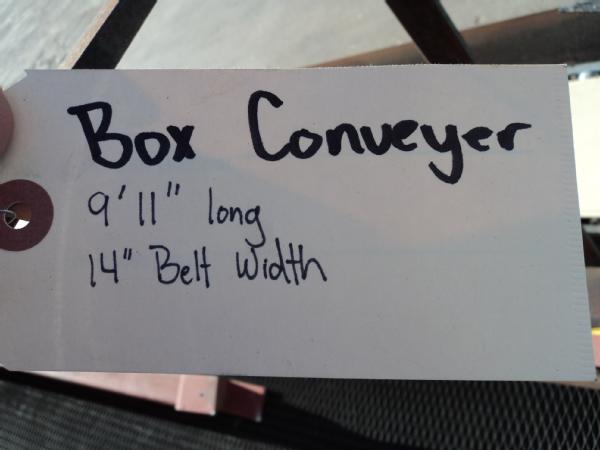 Box Conveyer
9'11" long
14" Belt Width